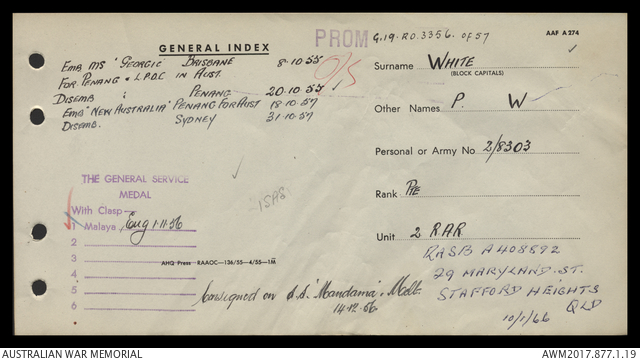 PROM G.19-R.O.3356. of 57 AAF A 274
GENERAL INDEX
Emb MS 'GEORGIC' BRISBANE 8·10·55
FOR PENANG & L.P.O.C IN AUST.
DISEMB : PENANG 20·10·55
EMB 'NEW AUSTRALIA' PENANG FOR AUST 18·10·57
DISEMB. SYDNEY 31·10·57
Surname WHITE
(BLOCK CAPITALS)
Other Names P. W
Personal or Army No 2/8303
Rank PTE
Unit 2 RAR
RASB A408892
29 MARYLAND. ST.
STAFFORD HEIGHTS
QLD
10/1/66
THE GENERAL SERVICE
MEDAL
With Clasp—
1 Malaya, Enq 1·11·56
2
3
4
5
6
AHQ Press RAAOC—136/55—4/55—1M
Consigned on s.s. 'Mandama', Melb.
14·12·56
AUSTRALIAN WAR MEMORIAL AWM2017.877.1.19